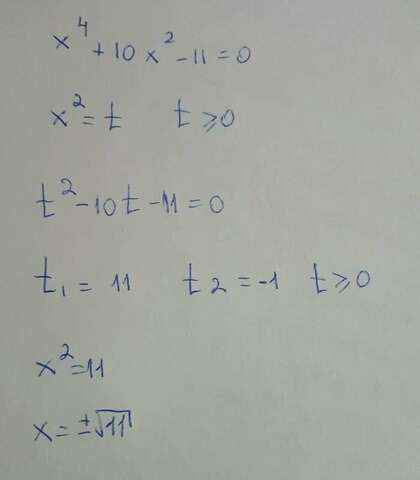 x⁴ + 10x² - 11 = 0
x² = t t ⩾ 0
t² - 10t - 11 = 0
t₁ = 11 t2 = -1 t ⩾ 0
x² = 11
x = ±√11